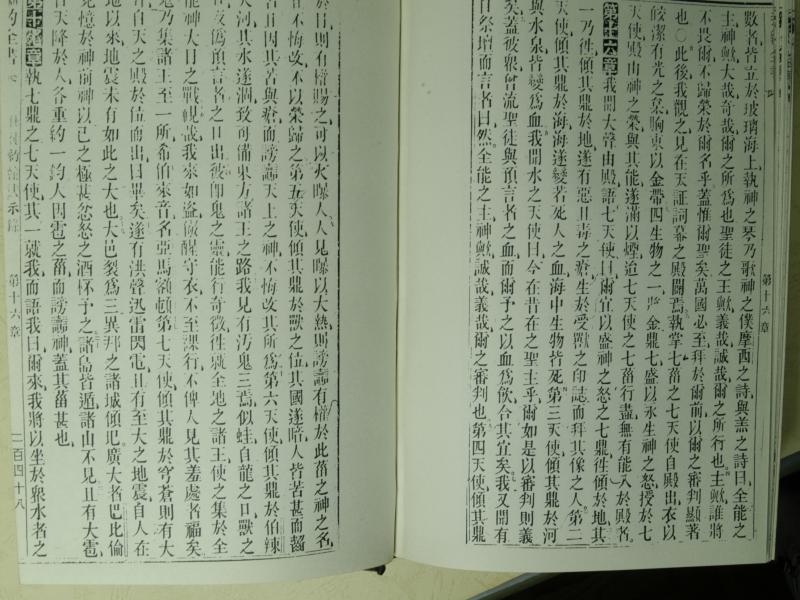 數者皆立於玻璃海上執神之琴乃歌神之僕摩西之詩與羔之詩曰全能之
主神歟大哉奇哉爾之所為也聖徒之王歟義哉誠哉爾之所行也主歟誰將
不畏爾不歸榮於爾名乎蓋惟爾聖矣萬國必至拜於爾前以爾之審判顯著
也○此後我觀之見在天証詞幕之殿開焉執掌七菑之七天使自殿出衣以
皎潔有光之枲胸束以金帶四生物之一將金鼎七盛以永生神之怒授於七
天使殿由神之榮與其能遂滿以煙迨七天使之七菑行盡無有能入於殿者
第十六章我聞大聲由殿語七天使曰爾宜以盛神之怒之七鼎徃傾於地其
一乃徃傾其鼎於地遂有惡且毒之瘡生於受獸之印誌而拜其像之人第二
天使傾其鼎於海海遂變若死人之血海中生物皆死第三天使傾其鼎於河
與水泉皆變為血我聞水之天使曰今在昔在之聖主乎爾如是以審判則義
矣蓋彼眾曾流聖徒與預言者之血而爾予之以血為飲合其宜矣我又聞有
自祭壇而言者曰然全能之主神歟誠哉義哉爾之審判也第四天使傾其鼎
第十六章
於日則有權賜之可以火曝人人見曝以大熱則謗讟有權於此菑之神之名
尔悔改不以榮歸之第五天使傾其鼎於獸之位其國遂暗人皆苦甚而齧
且因其苦與瘡而謗讟天上之神不悔改其所為第六天使傾其鼎於伯辣
大河其水遂涸致可備東方諸王之路我見有汚鬼三焉似蛙自龍之口獸之
及偽預言者之口出彼即鬼之靈能行奇徵徃就全地之諸王使之集於全
能神大日之戰視哉我來如盜儆醒守衣不至裸行不俾人見其羞處者福矣
鬼乃集諸王至一所希伯來音名亞馬額頓第七天使傾其鼎於穹蒼則有大
自天之殿於位而出曰畢矣遂有洪聲迅雷閃電且有至大之地震自人在
地以來地震未有如此之大也大邑裂為三異邦之諸城傾圯廣大者巴比倫
見憶於神前神以己之極甚忿怒之酒杯予之諸島皆遁諸山不見且有大雹
自天降於人各重約一鈞人因雹之菑而謗讟神蓋其菑甚也
第十七章執七鼎之七天使其一就我而語我曰爾來我將以坐於眾水者之
示錄
第十六章
二百四十八
約全書